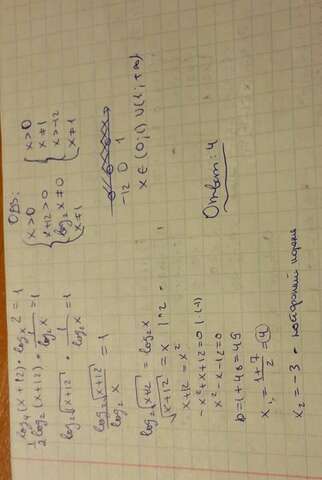 log₄(x+12)·logₓ2 = 1
½log₂(x+12)·1/log₂x = 1
log₂√x+12 · 1/log₂x = 1
log₂√x+12 / log₂x = 1
log₂√x+12 = log₂x
√x+12 = x |^2
x+12 = x²
-x²+x+12=0 |·(-1)
x²-x-12=0
D=1+48=49
x₁ = 1+7/2 = 4
x₂ = -3 -
ОДЗ:
{ x>0
x+12>0
log₂x ≠ 0
x≠1
{ x>0
x≠1
x>-12
x≠1
-12 0 1
x∈(0;1)∪(1;+∞)
Ответ: 4